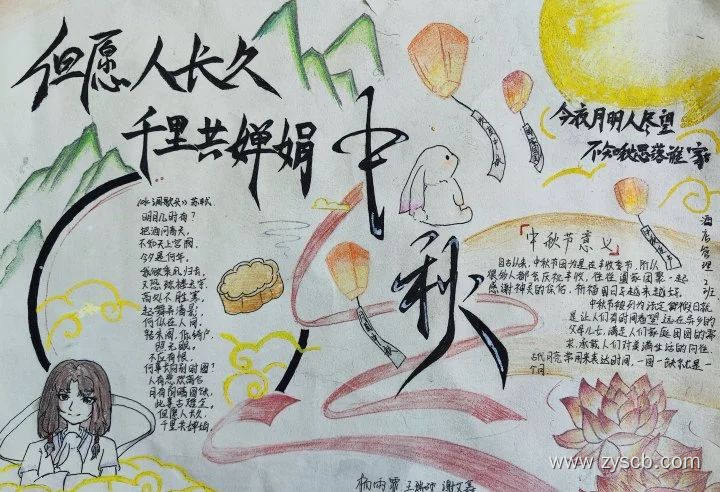 但愿人长久
千里共婵娟
中秋
今夜月明人尽望
不知秋思落谁家
《水调歌头》苏轼
明月几时有?
把酒问青天,
不知天上宫阙,
今夕是何年。
我欲乘风归去,
又恐琼楼玉宇,
高处不胜寒,
起舞弄清影,
何似在人间,
转朱阁,低绮户,
照无眠。
不应有恨,
何事长向别时圆?
人有悲欢离合
月有阴晴圆缺,
此事古难全。
但愿人长久,
千里共婵娟。
「中秋节意义
自古以来,中秋节因为是在丰收季节,所以
很多人都会庆祝丰收,往往阖家团聚一起
感谢神灵的保佑,祈福因日子越来越好。
中秋节被列为法定节假日就
是让人们有时间看望远在家乡的
父母儿女,满足人们家庭团圆的需
求,承载人们对美满生活的向往。
古代月亮常用来表达时间,一圆一缺就是一
个月
酒店管理2班
www.zyscb.com